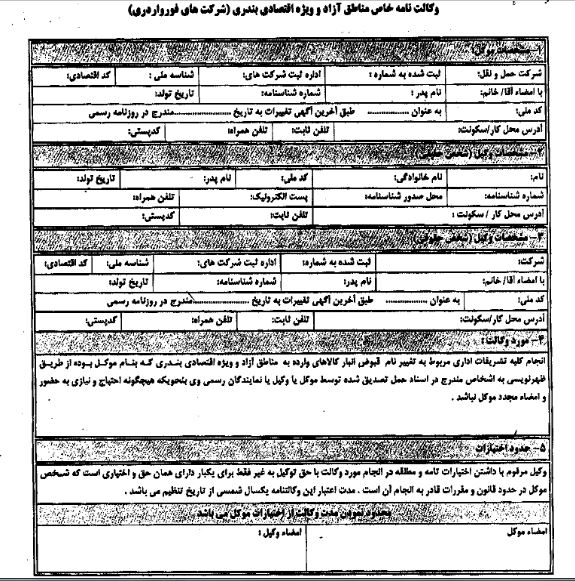 وکالت نامه خاص مناطق آزاد و ویژه اقتصادی بندری (شرکت های فورواردری)
۱- مشخصات موکل:
شرکت حمل و نقل: ثبت شده به شماره : اداره ثبت شرکت های: شناسه ملی : کد اقتصادی:
با امضاء آقا/ خانم: نام پدر : شماره شناسنامه: تاریخ تولد:
کد ملی: به عنوان .................. طبق آخرین آگهی تغییرات به تاریخ ........................مندرج در روزنامه رسمی
آدرس محل کار/سکونت: تلفن ثابت: تلفن همراه: کدپستی:
۲- مشخصات وکیل (شخص حقیقی)
نام: نام خانوادگی: کد ملی: نام پدر: تاریخ تولد:
شماره شناسنامه: محل صدور شناسنامه: پست الکترونیک: تلفن همراه:
آدرس محل کار / سکونت : تلفن ثابت: کدپستی:
۳- مشخصات وکیل (شخص حقوقی)
شرکت: ثبت شده به شماره: اداره ثبت شرکت های: شناسه ملی: کد اقتصادی:
با امضاء آقا/ خانم: نام پدر: شماره شناسنامه: تاریخ تولد:
کد ملی: به عنوان .................. طبق آخرین آگهی تغییرات به تاریخ ........................مندرج در روزنامه رسمی
آدرس محل کار/سکونت: تلفن ثابت: تلفن همراه: کدپستی:
۴- مورد وکالت:
انجام کلیه تشریفات اداری مربوط به تغییر نام قبوض انبار کالاهای وارده به مناطق آزاد و ویژه اقتصادی بندری که بنام موکل بوده از طریق
ظهرنویسی به اشخاص مندرج در اسناد حمل تصدیق شده توسط موکل یا وکیل یا نمایندگان رسمی وی بنحویکه هیچگونه احتیاج و نیازی به حضور
و امضاء مجدد موکل نباشد .
۵- حدود اختیارات
وکیل مرقوم با داشتن اختیارات تامه و مطلقه در انجام مورد وکالت با حق توکیل به غیر فقط برای یکبار دارای همان حق و اختیاری است که شخص
موکل در حدود قانون و مقررات قادر به انجام آن است . مدت اعتبار این وکالتنامه یکسال شمسی از تاریخ تنظیم می باشد .
محدود نمودن مدت وکالت از اختیارات موکل می باشد
امضاء موکل امضاء وکیل :